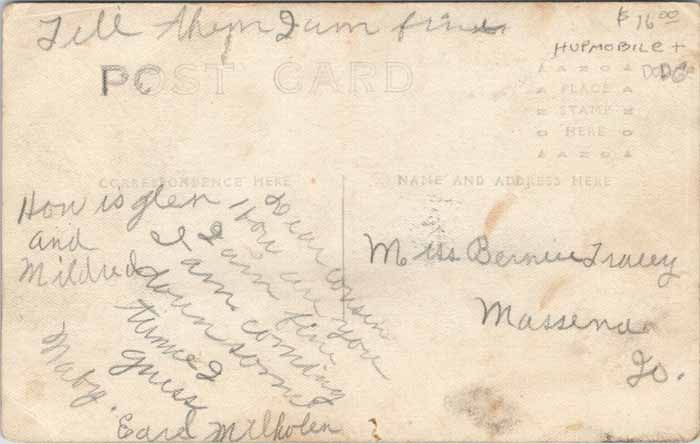 Tell them I am fine
$16.00
HUPMOBILE +
DODGE
POST CARD
AZO
PLACE
STAMP
HERE
AZO
CORRESPONDENCE HERE
NAME AND ADDRESS HERE
Dear cousin
How are you
I am fine
I am coming
down some
time I
guess
Maby.
Earl Milholen
How is glen
and
Mildred
Miss Bernice Tracey
Massena
Io.